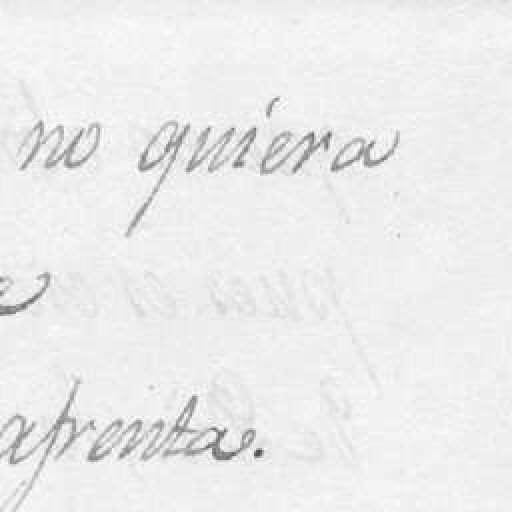 no quiera
afrenta.